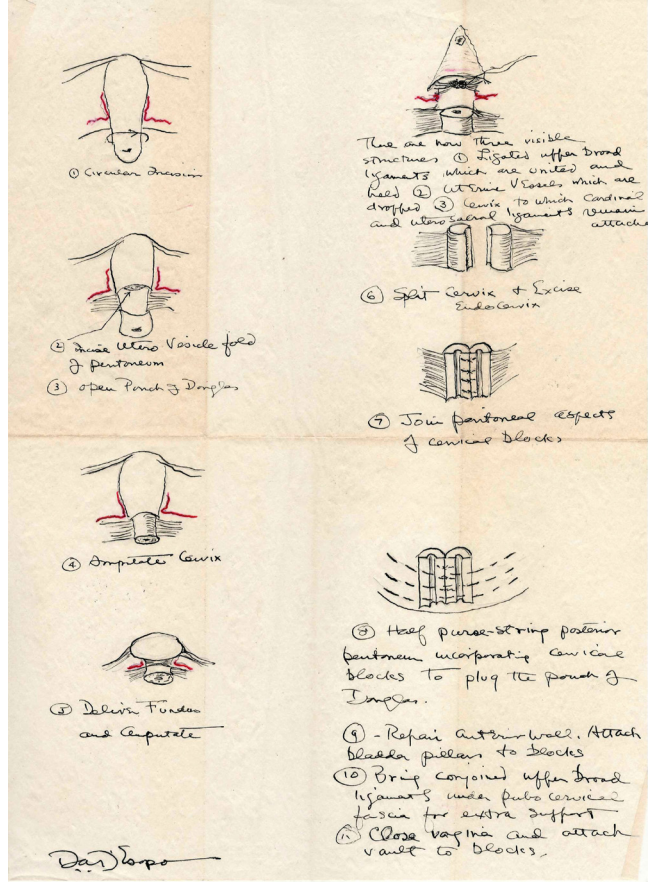 ① Circular Incision
② Incise Utero Vesicle fold
of peritoneum
③ Open Pouch of Douglas
④ Amputate Cervix
⑤ Deliver Fundus
and Amputate
There are now three visible
structures ① Ligated upper broad
ligaments which are united and
held ② Uterine Vessels which are
dropped ③ Cervix to which Cardinal
and uterosacral ligaments remain
attached
⑥ Split Cervix & Excise
Endocervix
⑦ Join peritoneal aspects
of cervical blocks
⑧ Half purse-string posterior
peritoneum incorporating cervical
blocks to plug the pouch of
Douglas.
⑨ - Repair anterior wall. Attach
bladder pillars to blocks
⑩ Bring conjoined upper broad
ligaments under pubo cervical
fascia for extra support
⑪ Close vagina and attach
vault to blocks.